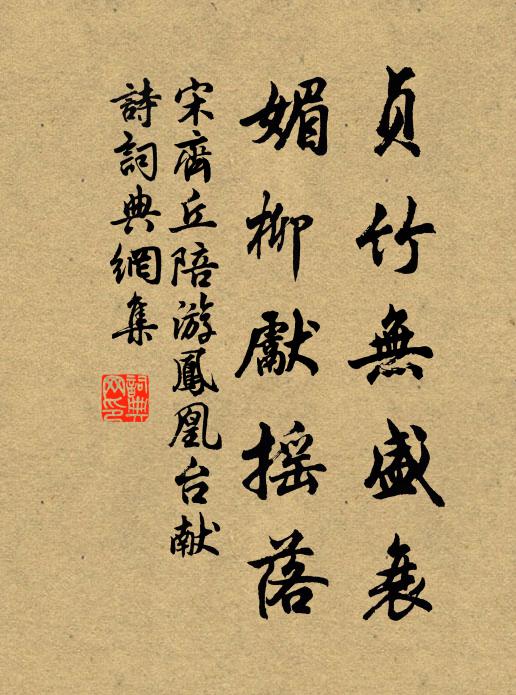 贞竹無盛衰
媚柳獻摇落
宋齊丘陪游鳳凰台献
詩詞典網集
詞典
网印